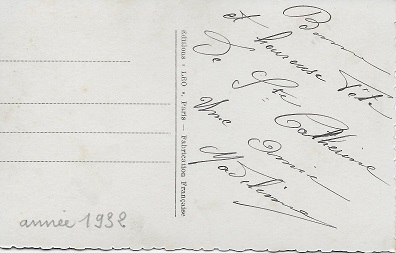 Bonne
et heureuse Fête
De Ste Catherine
Une Amie
Madeleine
Editions « LEO », Paris — Fabrication Française
année 1932